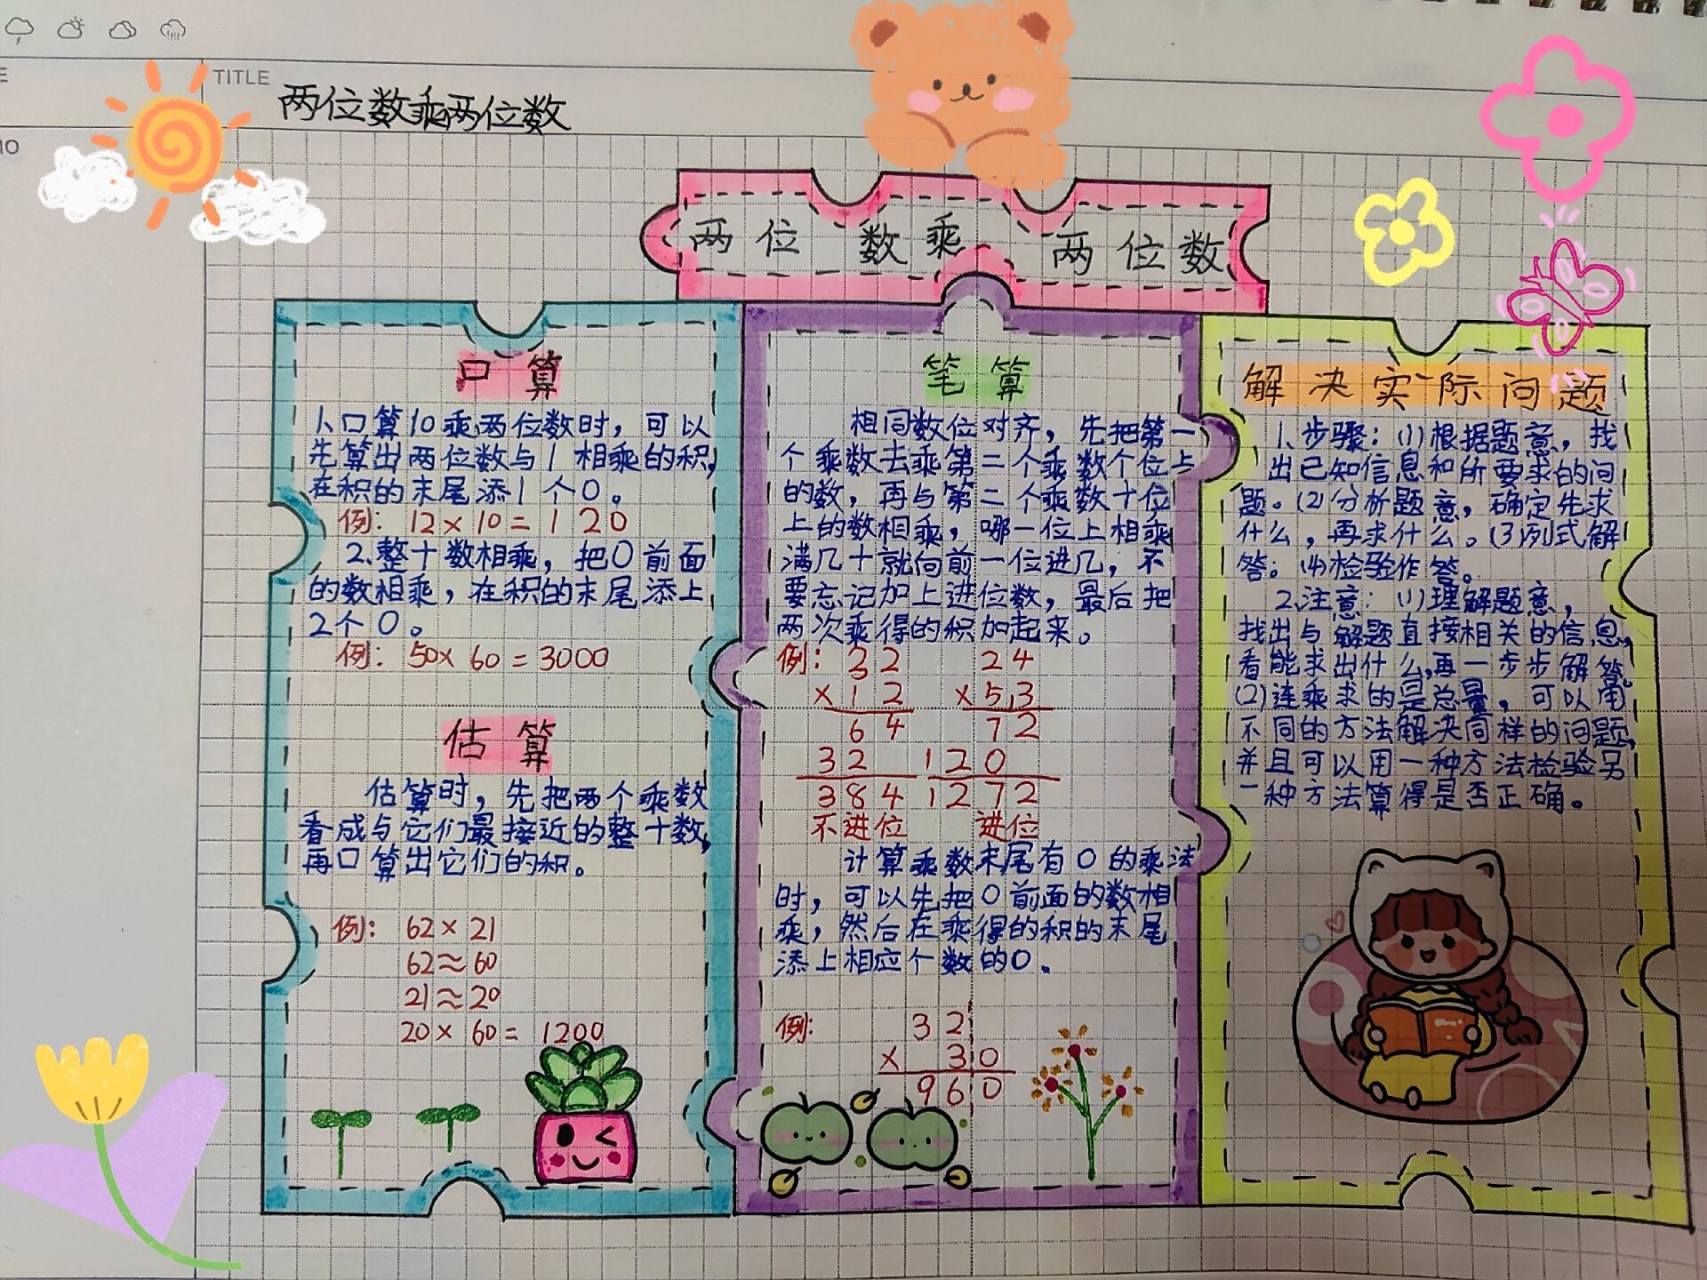 TITLE
两位数乘两位数
两位数乘两位数
口算
1、口算10乘两位数时，可以
先算出两位数与1相乘的积，
在积的末尾添1个0。
例：12×10=120
2.整十数相乘，把0前面
的数相乘，在积的末尾添上
2个0。
例：50×60=3000
估算
估算时，先把两个乘数
看成与它们最接近的整十数，
再口算出它们的积。
例：62×21
62≈60
21≈20
20×60=1200
笔算
相同数位对齐，先把第一
个乘数去乘第二个乘数个位上
的数，再与第二个乘数十位
上的数相乘，哪一位上相乘
满几十就向前一位进几，不
要忘记加上进位数，最后把
两次乘得的积加起来。
例：32 24
×12 ×53
64 72
32 120
384 1272
不进位 进位
计算乘数末尾有0的乘法
时，可以先把0前面的数相
乘，然后在乘得的积的末尾
添上相应个数的0。
例：32
×30
960
解决实际问题
1、步骤：(1)根据题意，找
出已知信息和所要求的问
题。(2)分析题意，确定先求
什么，再求什么。(3)列式解
答。(4)检验作答。
2、注意：(1)理解题意，
找出与解题直接相关的信息，
看能求出什么，再一步步解答。
(2)连乘求的是总量，可以用
不同的方法解决同样的问题，
并且可以用一种方法检验另
一种方法算得是否正确。